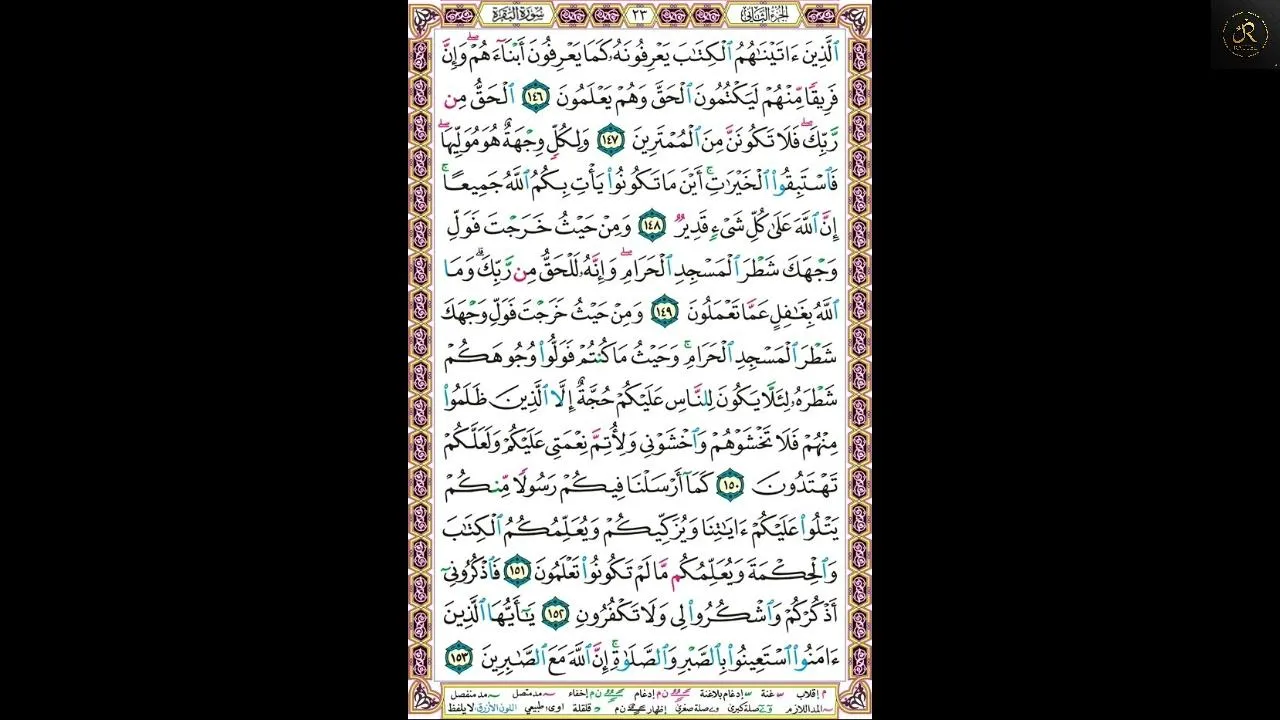 الجزء الثاني ٢٣ سورة البقرة
ٱلَّذِينَ ءَاتَيْنَٰهُمُ ٱلْكِتَٰبَ يَعْرِفُونَهُۥ كَمَا يَعْرِفُونَ أَبْنَآءَهُمْ ۖ وَإِنَّ
فَرِيقًا مِّنْهُمْ لَيَكْتُمُونَ ٱلْحَقَّ وَهُمْ يَعْلَمُونَ ١٤٦ ٱلْحَقُّ مِن
رَّبِّكَ ۖ فَلَا تَكُونَنَّ مِنَ ٱلْمُمْتَرِينَ ١٤٧ وَلِكُلٍّ وِجْهَةٌ هُوَ مُوَلِّيهَا ۖ
فَٱسْتَبِقُوا۟ ٱلْخَيْرَٰتِ ۚ أَيْنَ مَا تَكُونُوا۟ يَأْتِ بِكُمُ ٱللَّهُ جَمِيعًا ۚ
إِنَّ ٱللَّهَ عَلَىٰ كُلِّ شَىْءٍ قَدِيرٌ ١٤٨ وَمِنْ حَيْثُ خَرَجْتَ فَوَلِّ
وَجْهَكَ شَطْرَ ٱلْمَسْجِدِ ٱلْحَرَامِ ۖ وَإِنَّهُۥ لَلْحَقُّ مِن رَّبِّكَ ۗ وَمَا
ٱللَّهُ بِغَٰفِلٍ عَمَّا تَعْمَلُونَ ١٤٩ وَمِنْ حَيْثُ خَرَجْتَ فَوَلِّ وَجْهَكَ
شَطْرَ ٱلْمَسْجِدِ ٱلْحَرَامِ ۚ وَحَيْثُ مَا كُنتُمْ فَوَلُّوا۟ وُجُوهَكُمْ
شَطْرَهُۥ لِئَلَّا يَكُونَ لِلنَّاسِ عَلَيْكُمْ حُجَّةٌ إِلَّا ٱلَّذِينَ ظَلَمُوا۟
مِنْهُمْ فَلَا تَخْشَوْهُمْ وَٱخْشَوْنِى وَلِأُتِمَّ نِعْمَتِى عَلَيْكُمْ وَلَعَلَّكُمْ
تَهْتَدُونَ ١٥٠ كَمَآ أَرْسَلْنَا فِيكُمْ رَسُولًا مِّنكُمْ
يَتْلُوا۟ عَلَيْكُمْ ءَايَٰتِنَا وَيُزَكِّيكُمْ وَيُعَلِّمُكُمُ ٱلْكِتَٰبَ
وَٱلْحِكْمَةَ وَيُعَلِّمُكُم مَّا لَمْ تَكُونُوا۟ تَعْلَمُونَ ١٥١ فَٱذْكُرُونِىٓ
أَذْكُرْكُمْ وَٱشْكُرُوا۟ لِى وَلَا تَكْفُرُونِ ١٥٢ يَٰٓأَيُّهَا ٱلَّذِينَ
ءَامَنُوا۟ ٱسْتَعِينُوا۟ بِٱلصَّبْرِ وَٱلصَّلَوٰةِ ۚ إِنَّ ٱللَّهَ مَعَ ٱلصَّٰبِرِينَ ١٥٣
إقلاب غنة إدغام بلاغنة إدغام إخفاء مد متصل مد منفصل
المد اللازم صلة كبرى صلة صغرى إظهار قلقلة طبيعي اللون الأزرق لا يلفظ